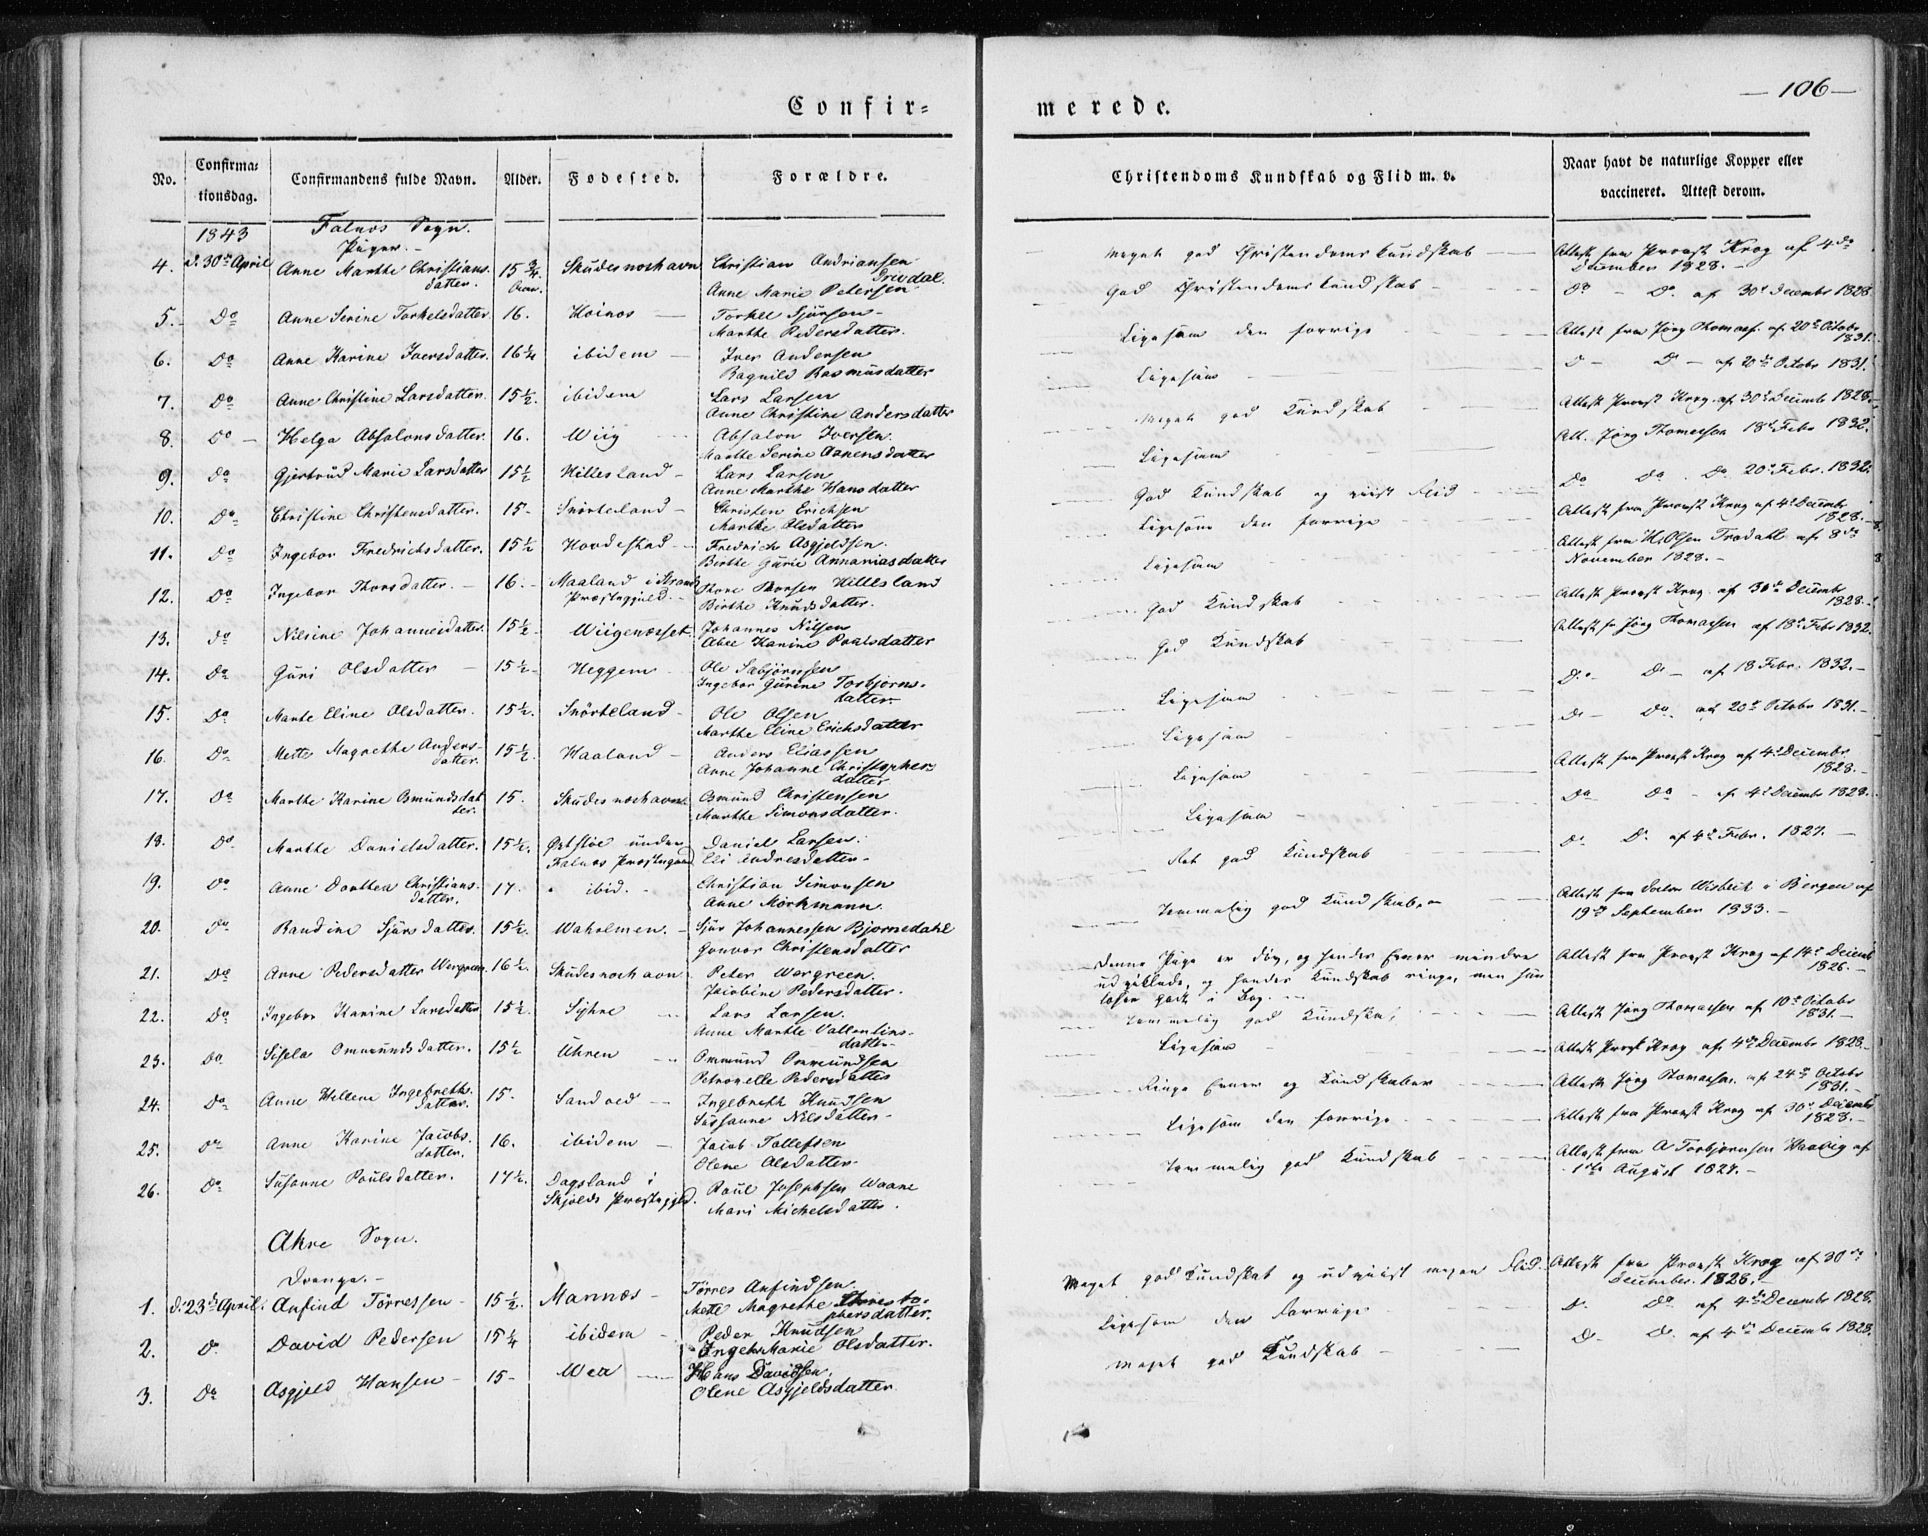 — 106 —
Confir= merede.
No. Confirma= tionsdag. Confirmandens fulde Navn. Alder. Fodested. Forældre. Christendoms Kundskab og Flid m. v. Naar havt de naturlige Kopper eller vaccineret. Attest derom.
1843 Falnæs Sogn.
Piger.
4. d. 30te April Anne Marthe Christians- 15 3/4 Skudesnæshavn Christian Andriansen Meget god Christendomskundskab Attest fra Provst Krog af 4de
datter. Anne Marie Petersen December 1828.
5. Do Anne Serine Torkelsdatter 16. Hoinæs Torkel Sjursen God Christendomskundskab Do Do af 30te December 1828
Marthe Pedersdatter.
6. Do Anne Karine Iversdatter. 16 1/4 ibidem Iver Andersen Ligesom den forrige Attest fra Jørg Thomas. af 20de Octobr
Ragnild Rasmusdatter 1831.
7. Do Anne Christine Larsdatter. 15 1/2. ibidem Lars Larsen Ligesom D D af 20de Octobr 1831.
Anne Christine Andersdatter
8. Do Helga Absalonsdatter. 16. Wiig Absalon Iversen. Meget god Kundskab Attest Provst Krog af 30te Decemb 1828
Marthe Serine Aanensdatter
9. Do Gjertrud Marie Larsdatter 15 1/2 Hillesland Lars Larsen Ligesom Att. Jørg Thomassen 18de Febr 1832.
Anne Marthe Hansdatter
10. Do Christine Christensdatter. 15 Snørteland Christen Erichsen God Kundskab og viist Flid Do Do Do 20de Febr. 1832
Marthe Olsdatter
11. Do Ingebor Fredrichsdatter. 15 1/2 Hovdestad Fredrich Asgjeldsen. Ligesom den forrige Attest fra Provst Krog af 4de Decembr
Birthe Gurie Annaniasdatter 1828.
12. Do Ingebor Thorsdatter. 16. Maaland i Strand Thore Thorsen Hillesland Ligesom Attest fra H. Olsen Trædahl af 8de
Præstegjeld. Birthe Knudsdatter. November 1828.
13. Do Nilsine Johannesdatter. 15 1/2 Wiigenæsset Johannes Nilsen God Kundskab Attest Provst Krog af 30te Decembr
Karine Poulsdatter 1828.
14. Do Guri Olsdatter 15 1/2 Heggem Ole God Kundskab Attest fr Jørg Thomassen af 18de Febr 1832.
Ingebor Gurine Torbjørns-
datter
15. Do Marte Eline Olsdatter. 15 1/2. Snørteland Ole Olsen Ligesom Do Do af 18 Febr. 1832.
Marthe Eline Erichsdatter
16. Do Mette Magrethe Anders- 15 1/2. Haaland Anders Eliassen Ligesom Do Do af 20de Octobr 1831.
datter. Anne Johanne Christopher-
datter
17. Do Marthe Karine Osmundsdat 15. Skudesnæshavn Osmund Christensen Ligesom Attest fra Provst Krog af 4de Decembr
ter. Marthe Simonsdatter. 1828.
18. Do Marthe Danielsdatter. 15 1/2. under Daniel Larsen. Ligesom Do Do af 4de Decembr 1828.
Falnæs Præstegaard Eli Endresdatter
19. Do Anne Dorthea Christians- 17. ibid. Christian Simonsen Ret god Kundskab Do Do af 4de Febr. 1827.
datter. Anne Mørkmann.
20. Do Randine Sjursdatter. 15 1/2. Waholmen. Sjur Johannessen Bjørnedahl Temmelig god Kundskab. Attest fra Doctor Wisbech i Bergen af
Gunvor Christensdatter 19de September 1833.
21. Do Anne Pedersdatter Wergreen. 16 1/2. Skudesnæshavn Peter Wergreen. Denne Pige er døv, og hendes Evner mindre Attest fra Provst Krog af 14de Decemb
Jacobine Pedersdatter. udviklede, og hendes Kundskab ringe, men hun 1826.
læser godt i Bog.
22. Do Ingebor Karine Larsdatter 15 1/2. Syhre Lars Larsen. Temmelig god Kundskab Attest Jørg Thomassen af 10de Octobr
Anne Marthe Vallentins- 1831.
datter
23. Do Sisela Ommundsdatter. 15 1/2 Uhren Ommund Ommundsen Ligesom Attest Provst Krog af 4de Decembr 1828.
Petronelle Pedersdatter
24. Do Anne Hellene Ingebreths- 15. Sandved Ingebreth Knudsen Ringe Evner og Kundskaber Attest Jørg Thomassen. af 24de Octobr
datter. Susanne Nilsdatter 1831.
25. Do Anne Karine Jacobs- 16. ibidem Jacob Tollefsen Ligesom den forrige Attest fra Provst Krog af 30te Decembr
datter. Olene Olsdatter. 1828.
26. Do Susanne Poulsdatter. 17 1/2. Dagsland i Poul Josephsen Waane Temmelig god Kundskab Attest fra A Torbjørnsen Waavig af
Skjolds Præstegjeld. Mari Michelsdatter. 1ste August 1827.
Akre Sogn.
Drenge.
1. d. 23de April. Anfind Tørressen 15 1/2. Mannæs Tørres Anfindsen Meget god Kundskab og udviist megen Flid. Attest fra Provst Krog af 30te
Mette Magrethe December 1828.
phersdatter.
2. Do David Pedersen 15 1/4 ibidem Peder Knudsen Ligesom den forrige Do Do af 4de Decembr 1828.
Ingeb. Marie Olsdatter.
3. Do Asgjeld Hansen 15 Wea Hans Davidsen. Meget god Kundskab Do Do af 4de Decembr 1828.
Olene Asgjeldsdatter